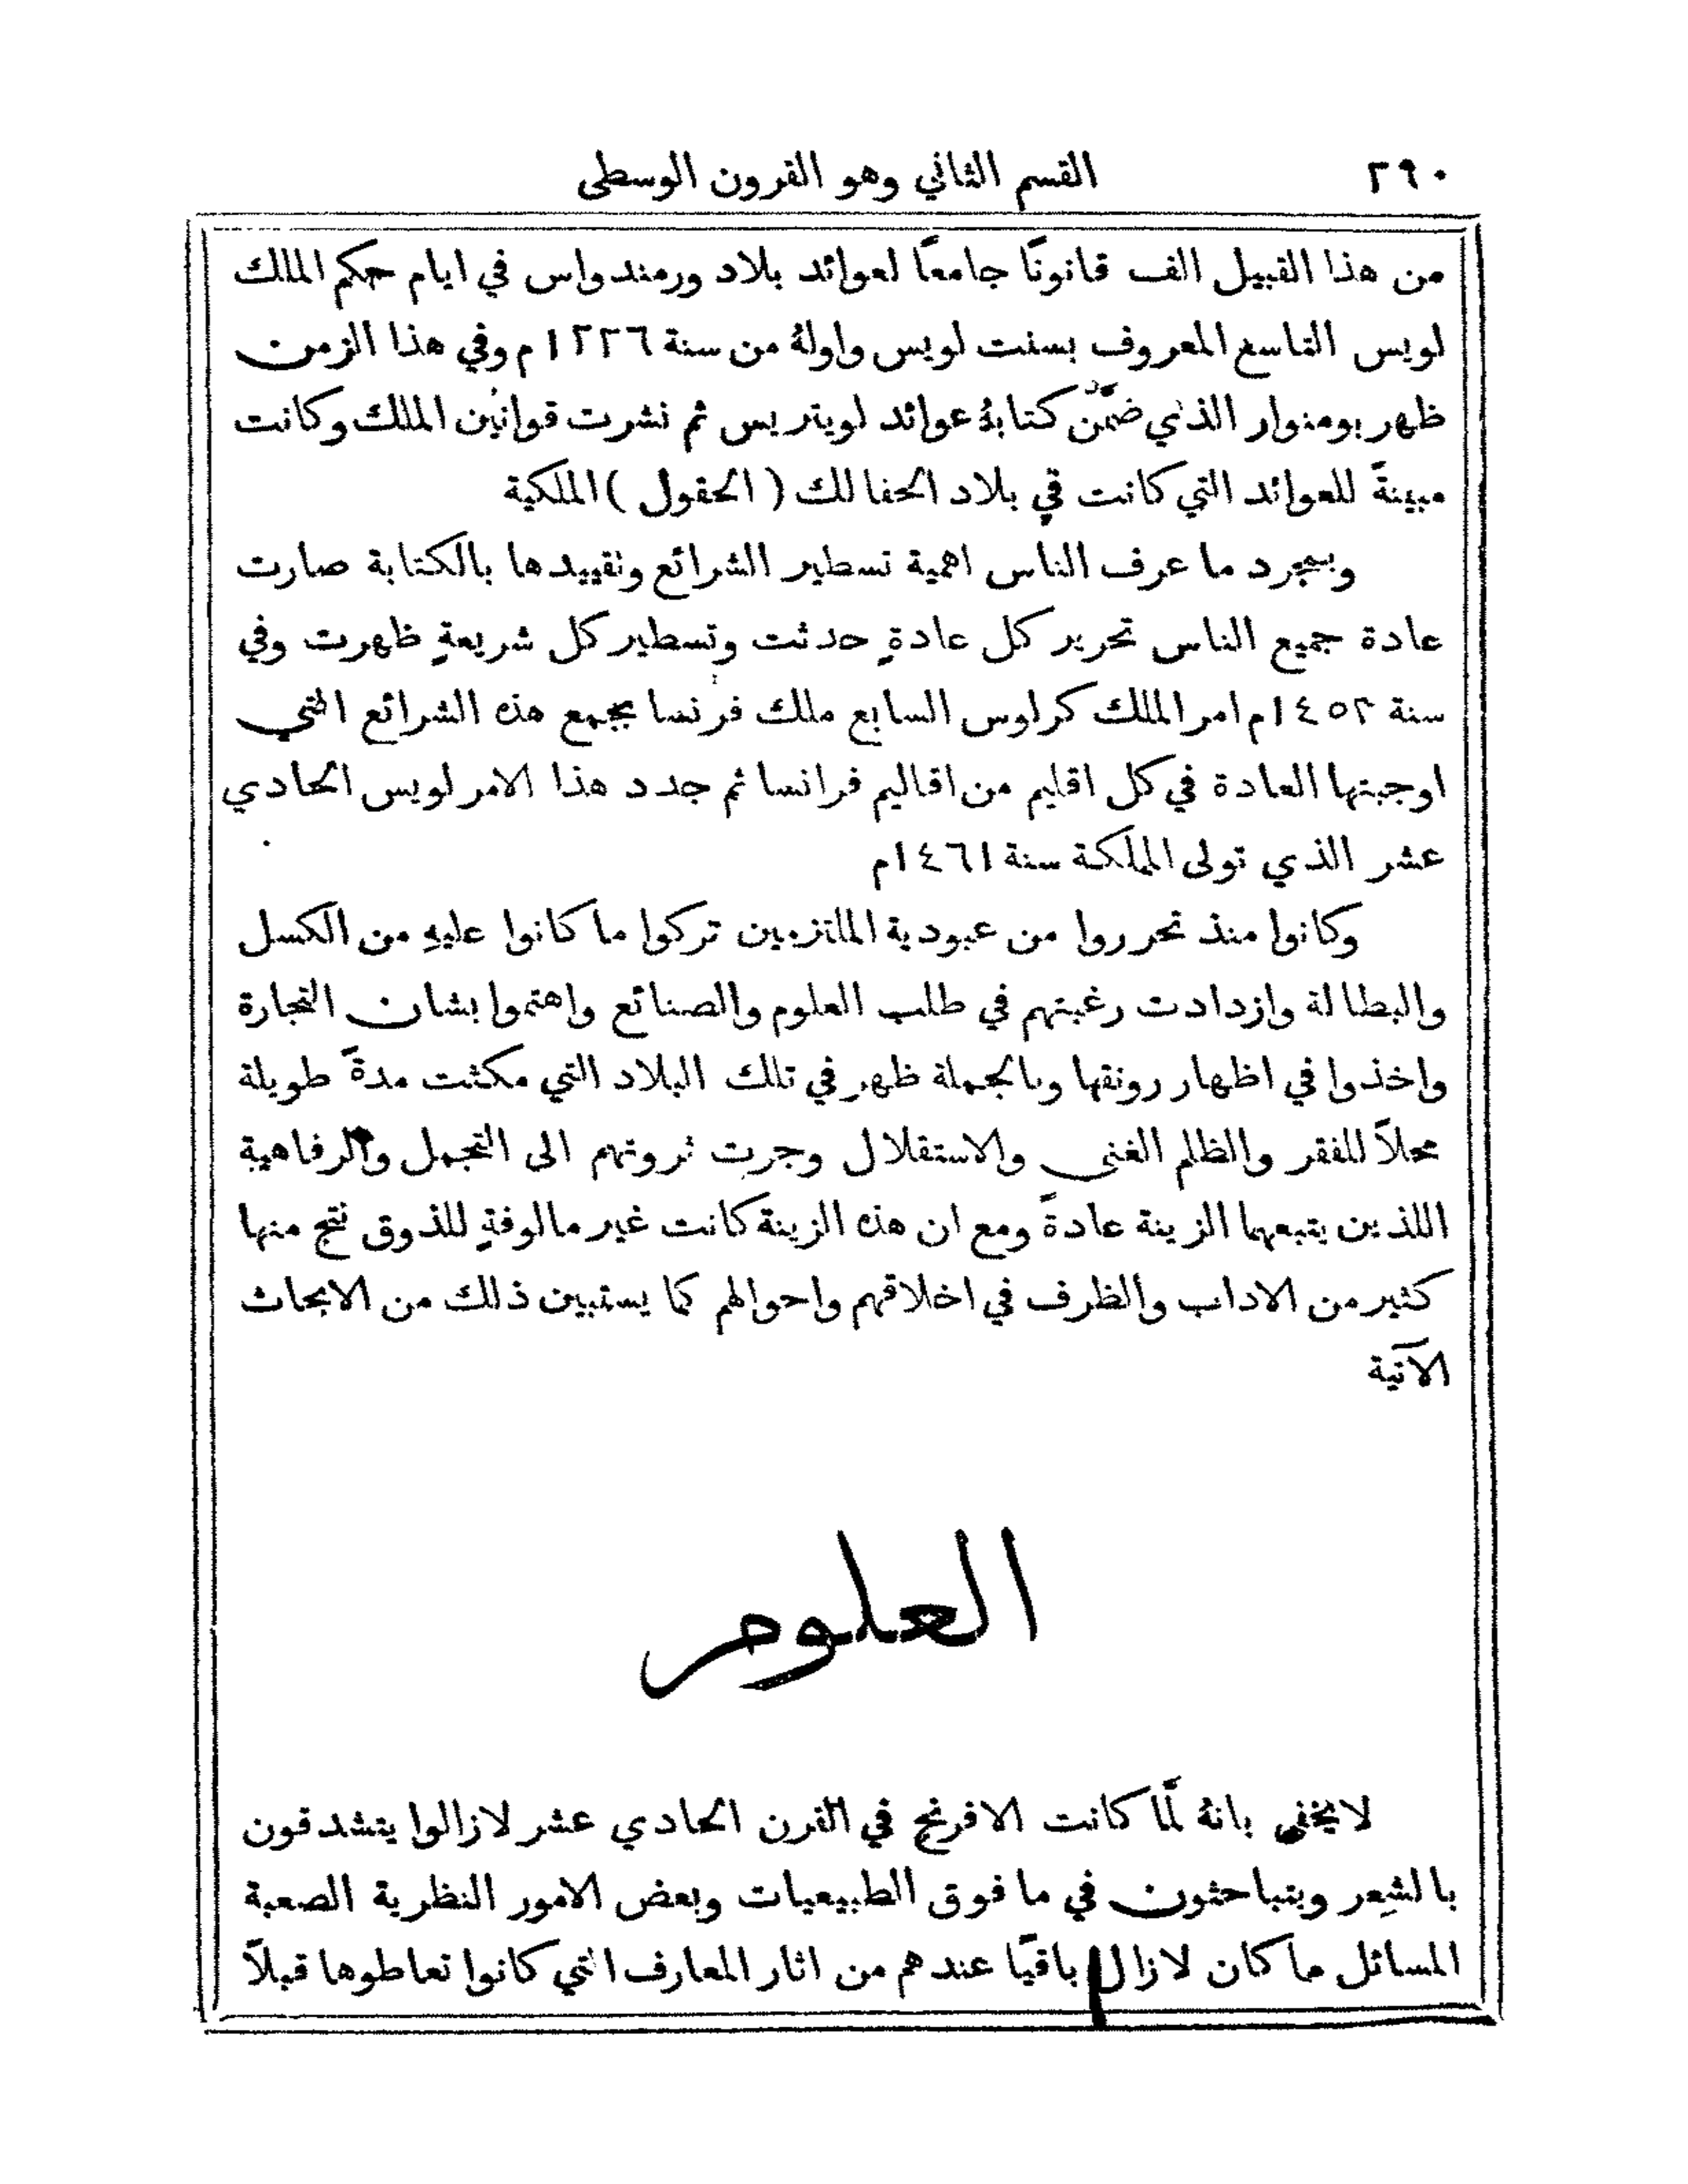 ٢٩٠ القسم الثاني وهو القرون الوسطى
من هذا القبيل الف قانونًا جامعًا لعوائد بلاد ورمندواس في ايام حكم الملك
لويس التاسع المعروف بسنت لويس واولهُ من سنة ١٢٢٦ م وفي هذا الزمن
ظهر بومنوار الذي ضمَّن كتابهُ عوائد لويتريس ثم نشرت قوانين الملك وكانت
مبينةً للعوائد التي كانت في بلاد الحفالك ( الحقول ) الملكية
وبمجرد ما عرف الناس اهمية تسطير الشرائع وتقييدها بالكتابة صارت
عادة جميع الناس تحرير كل عادةٍ حدثت وتسطير كل شريعةٍ ظهرت وفي
سنة ١٤٥٢م امر الملك كرلوس السابع ملك فرنسا بجمع هذه الشرائع التي
اوجبتها العادة في كل اقليم من اقاليم فرانسا ثم جدد هذا الامر لويس الحادي
عشر الذي تولى المملكة سنة ١٤٦١م
وكانوا منذ تحرروا من عبودية الملتزمين تركوا ما كانوا عليهِ من الكسل
والبطالة وازدادت رغبتهم في طلب العلوم والصنائع واهتموا بشان التجارة
واخذوا في اظهار رونقها وبالجملة ظهر في تلك البلاد التي مكثت مدةً طويلة
محلاً للفقر والظلم الغنى والاستقلال وجرت ثروتهم الى التجمل والرفاهية
اللذين يتبعهما الزينة عادةً ومع ان هذه الزينة كانت غير مالوفةٍ للذوق نتج منها
كثير من الاداب والظرف في اخلاقهم واحوالهم كما يستبين ذلك من الابحاث
الآتية
العلوم
لا يخفى بانهُ لمَّا كانت الافرنج في القرن الحادي عشر لازالوا يتشدقون
بالشِعر ويتباحثون في ما فوق الطبيعيات وبعض الامور النظرية الصعبة
المسائل ما كان لازال باقيًا عندهم من اثار المعارف التي كانوا تعاطوها قبلاً